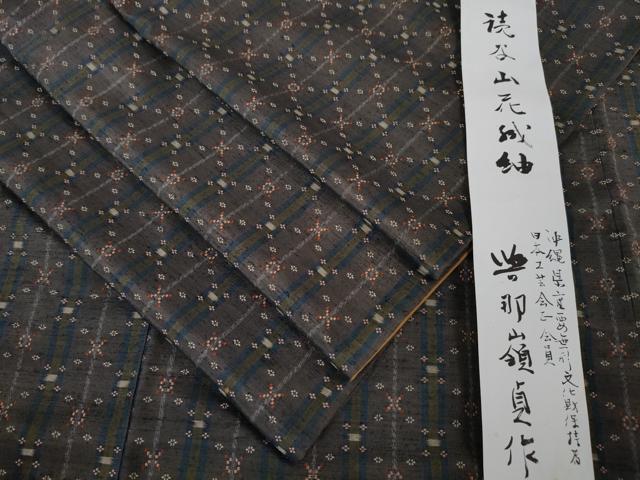 読谷山花織紬
沖縄県重要無形文化財保持者
日本工芸会正会員
與那嶺貞作